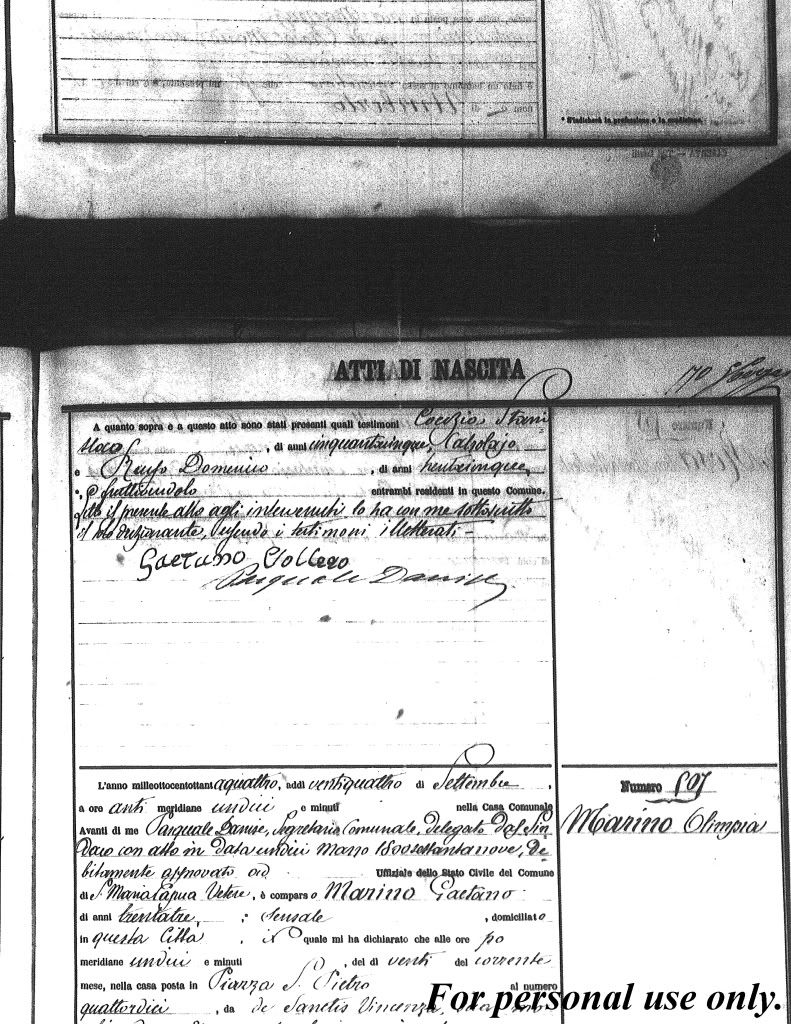 * S'indicherà la professione o la condizione.
ATTI DI NASCITA
A quanto sopra e a questo atto sono stati presenti quali testimoni Cocozio Stani
slao, di anni cinquantacinque, Calzolajo
e Domenico, di anni trentacinque,
fruttivendolo entrambi residenti in questo Comune.
il presente atto agli intervenuti lo ha con me sottoscritto
il solo dichiarante, essendo i testimoni illetterati -
Gaetano
Pasquale Danise
L'anno milleottocentottantaquattro, addì ventiquattro di Settembre,
a ore anti meridiane undici e minuti nella Casa Comunale
Avanti di me Pasquale Danise, Segretario Comunale, delegato dal Sin
daco con atto in data undici Marzo 1800settantanove, de
bitamente approvato ad Uffiziale dello Stato Civile del Comune
di S. Maria Capua Vetere, è comparso Marino Gaetano
di anni trentatre, Sensale, domiciliato
in questa Città, il quale mi ha dichiarato che alle ore po
meridiane undici e minuti, del dì venti del corrente
mese, nella casa posta in Piazza S. Pietro al numero
quattordici, da de Sanctis Vincenza, sua mo
Numero 507
Marino Olimpia
For personal use only.